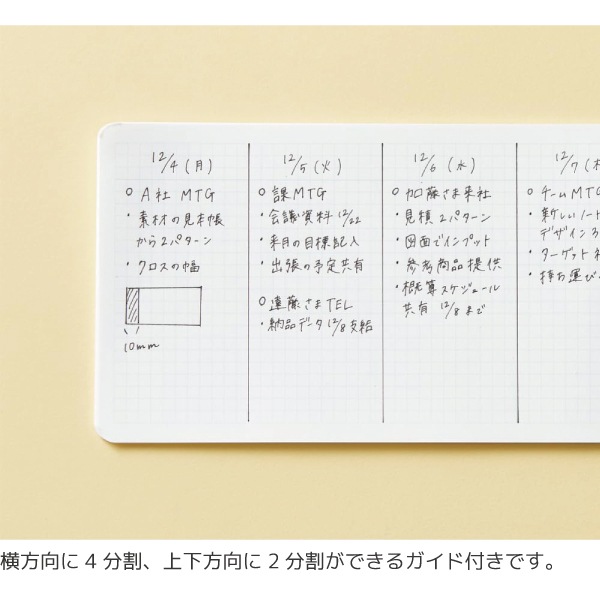 12/4(月)
○ A社 MTG
・素材の見本帳
から2パターン
・クロスの幅
10mm
12/5(火)
○ 課MTG
・会議資料 12/22
・来月の目標記入
・出張の予定共有
○ 遠藤さまTEL
・納品データ 12/8支給
12/6(水)
○ 加藤さま来社
・見積2パターン
・図面でインプット
・参考商品提供
・概算スケジュール
共有 12/8まで
12/7(木
○ チームMTG
・新しいノート
デザイン3
・ターゲット
・持ち運び
横方向に4分割、上下方向に2分割ができるガイド付きです。